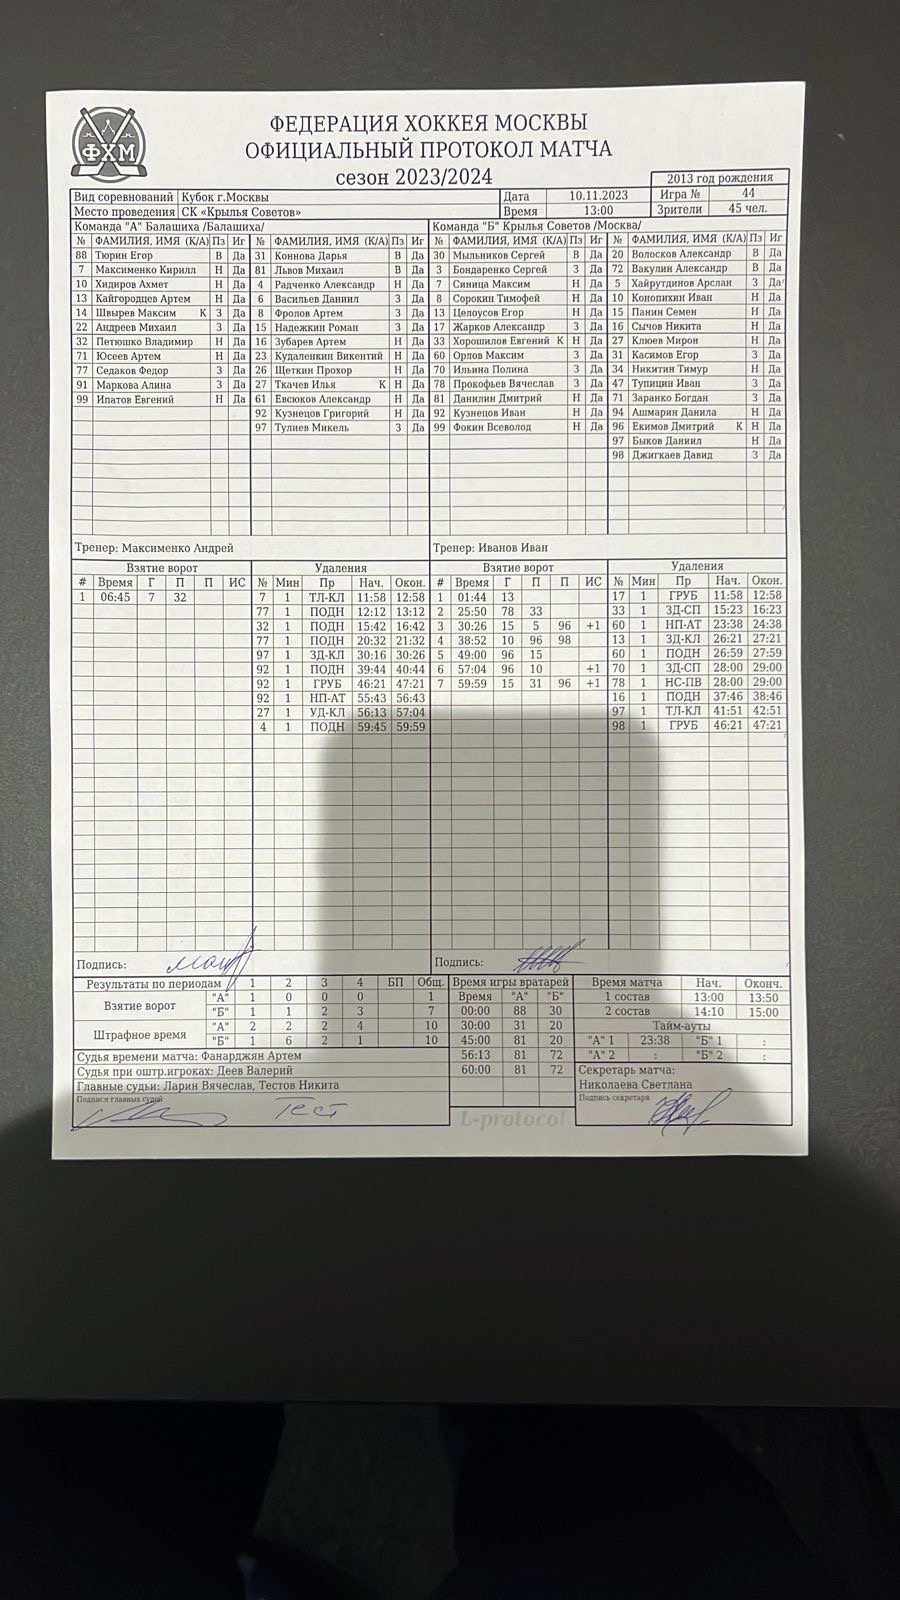 ФХМ
ФЕДЕРАЦИЯ ХОККЕЯ МОСКВЫ
ОФИЦИАЛЬНЫЙ ПРОТОКОЛ МАТЧА
сезон 2023/2024
2013 год рождения
Вид соревнований Кубок г.Москвы Дата 10.11.2023 Игра № 44
Место проведения СК «Крылья Советов» Время 13:00 Зрители 45 чел.
Команда "А" Балашиха /Балашиха/ Команда "Б" Крылья Советов /Москва/
№ ФАМИЛИЯ, ИМЯ (К/А) Пз Иг № ФАМИЛИЯ, ИМЯ (К/А) Пз Иг № ФАМИЛИЯ, ИМЯ (К/А) Пз Иг № ФАМИЛИЯ, ИМЯ (К/А) Пз Иг
88 Тюрин Егор В Да 31 Коннова Дарья В Да 30 Мыльников Сергей В Да 20 Волосков Александр В Да
7 Максименко Кирилл Н Да 81 Львов Михаил В Да 3 Бондаренко Сергей З Да 72 Вакулин Александр В Да
10 Хидиров Ахмет Н Да 4 Радченко Александр Н Да 7 Синица Максим Н Да 5 Хайрутдинов Арслан З Да
13 Кайгородцев Артем Н Да 6 Васильев Даниил З Да 8 Сорокин Тимофей Н Да 10 Конопихин Иван Н Да
14 Швырев Максим К З Да 8 Фролов Артем З Да 13 Целоусов Егор Н Да 15 Панин Семен Н Да
22 Андреев Михаил З Да 15 Надежкин Роман З Да 17 Жарков Александр З Да 16 Сычов Никита Н Да
32 Петюшко Владимир Н Да 16 Зубарев Артем Н Да 33 Хорошилов Евгений К Н Да 27 Клюев Мирон Н Да
71 Юсеев Артем Н Да 23 Кудаленкин Викентий Н Да 60 Орлов Максим З Да 31 Касимов Егор З Да
77 Седаков Федор З Да 26 Щеткин Прохор Н Да 70 Ильина Полина З Да 34 Никитин Тимур Н Да
91 Маркова Алина З Да 27 Ткачев Илья К Н Да 78 Прокофьев Вячеслав З Да 47 Тупицин Иван З Да
99 Ипатов Евгений Н Да 61 Евсюков Александр Н Да 81 Данилин Дмитрий Н Да 71 Заранко Богдан З Да
92 Кузнецов Григорий Н Да 92 Кузнецов Иван Н Да 94 Ашмарин Данила Н Да
97 Тулиев Микель З Да 99 Фокин Всеволод Н Да 96 Екимов Дмитрий К Н Да
97 Быков Даниил Н Да
98 Джигкаев Давид З Да
Тренер: Максименко Андрей Тренер: Иванов Иван
Взятие ворот Удаления Взятие ворот Удаления
# Время Г П П ИС № Мин Пр Нач. Окон. # Время Г П П ИС № Мин Пр Нач. Окон.
1 06:45 7 32 7 1 ТЛ-КЛ 11:58 12:58 1 01:44 13 17 1 ГРУБ 11:58 12:58
77 1 ПОДН 12:12 13:12 2 25:50 78 33 33 1 ЗД-СП 15:23 16:23
32 1 ПОДН 15:42 16:42 3 30:26 15 5 96 +1 60 1 НП-АТ 23:38 24:38
77 1 ПОДН 20:32 21:32 4 38:52 10 96 98 13 1 ЗД-КЛ 26:21 27:21
97 1 ЗД-КЛ 30:16 30:26 5 49:00 96 15 60 1 ПОДН 26:59 27:59
92 1 ПОДН 39:44 40:44 6 57:04 96 10 +1 70 1 ЗД-СП 28:00 29:00
92 1 ГРУБ 46:21 47:21 7 59:59 15 31 96 +1 78 1 НС-ПВ 28:00 29:00
92 1 НП-АТ 55:43 56:43 16 1 ПОДН 37:46 38:46
27 1 УД-КЛ 56:13 57:04 97 1 ТЛ-КЛ 41:51 42:51
4 1 ПОДН 59:45 59:59 98 1 ГРУБ 46:21 47:21
Подпись: Подпись:
Результаты по периодам 1 2 3 4 БП Общ. Время игры вратарей Время матча Нач. Оконч.
Взятие ворот "А" 1 0 0 0 1 Время "А" "Б" 1 состав 13:00 13:50
"Б" 1 1 2 3 7 00:00 88 30 2 состав 14:10 15:00
Штрафное время "А" 2 2 2 4 10 30:00 31 20 Тайм-ауты
"Б" 1 6 2 1 10 45:00 81 20 "А" 1 23:38 "Б" 1 :
Судья времени матча: Фанарджян Артем 56:13 81 72 "А" 2 : "Б" 2 :
Судья при оштр.игроках: Деев Валерий 60:00 81 72 Секретарь матча:
Главные судьи: Ларин Вячеслав, Тестов Никита Николаева Светлана
Подписи главных судей Тест Подпись секретаря
L-protocol